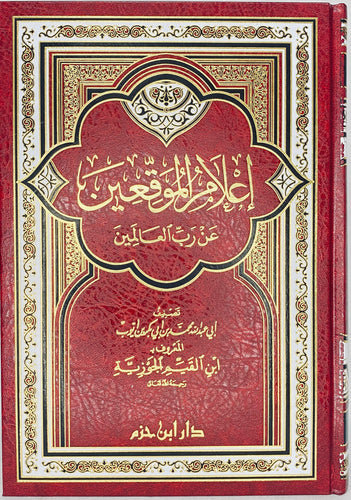 إعلام الموقعين
عن رب العالمين
تصنيف
أبي عبد الله محمد بن أبي بكر بن أيوب
المعروف بـ
ابن القيم الجوزية
رحمه الله تعالى
دار ابن حزم